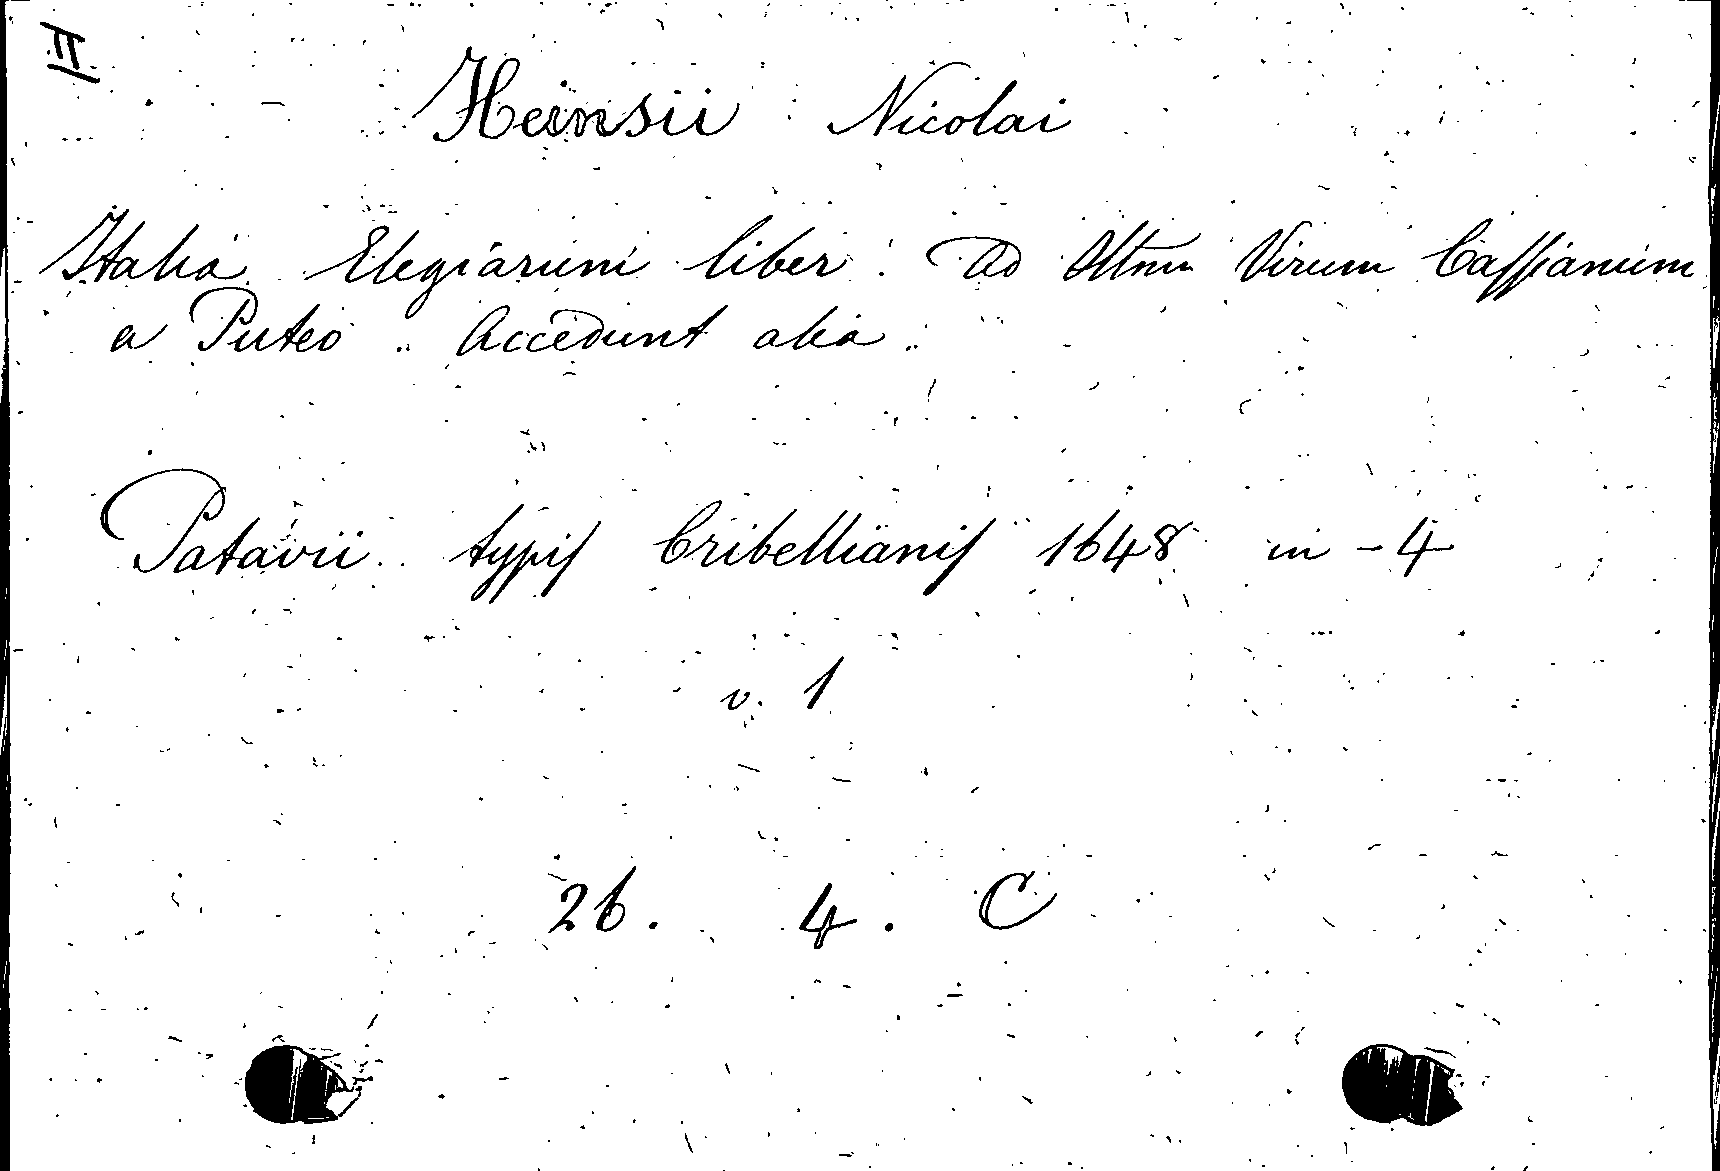 II
Heinsii Nicolai
Italia. Elegiarum liber. Ad Virum Cassianum
a Puteo. Accedunt alia.
Patavii typis Cribellianis 1648 in-4
v. 1
26. 4. C